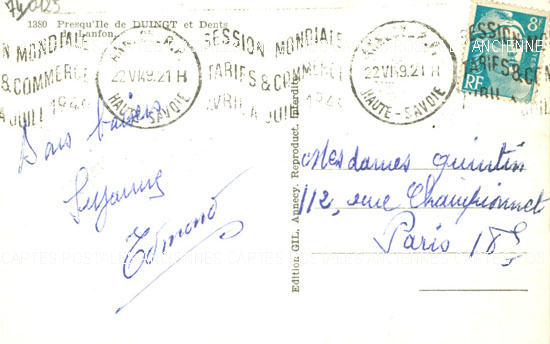 740123
1380 Presqu'île de DUINGT et Dents
Lanfon.
MONDIALE
& COMMERCE
JUILL 194
ANNECY R.P.
22 VI 49. 21 H
HAUTE-SAVOIE
SESSION MONDIALE
& COMMERCE
AVRIL A JUILL 194
ANNECY R.P.
22 VI 49. 21 H
HAUTE-SAVOIE
SESSION MONDIALE
& COMM
8F
RF
Bons baisers
Suzanne
Edmond
Edition GIL, Annecy. Reproduct. Interdite
Mesdames Quintin
112, rue Championnet
Paris 18e
CARTES POSTALES ANCIENNES